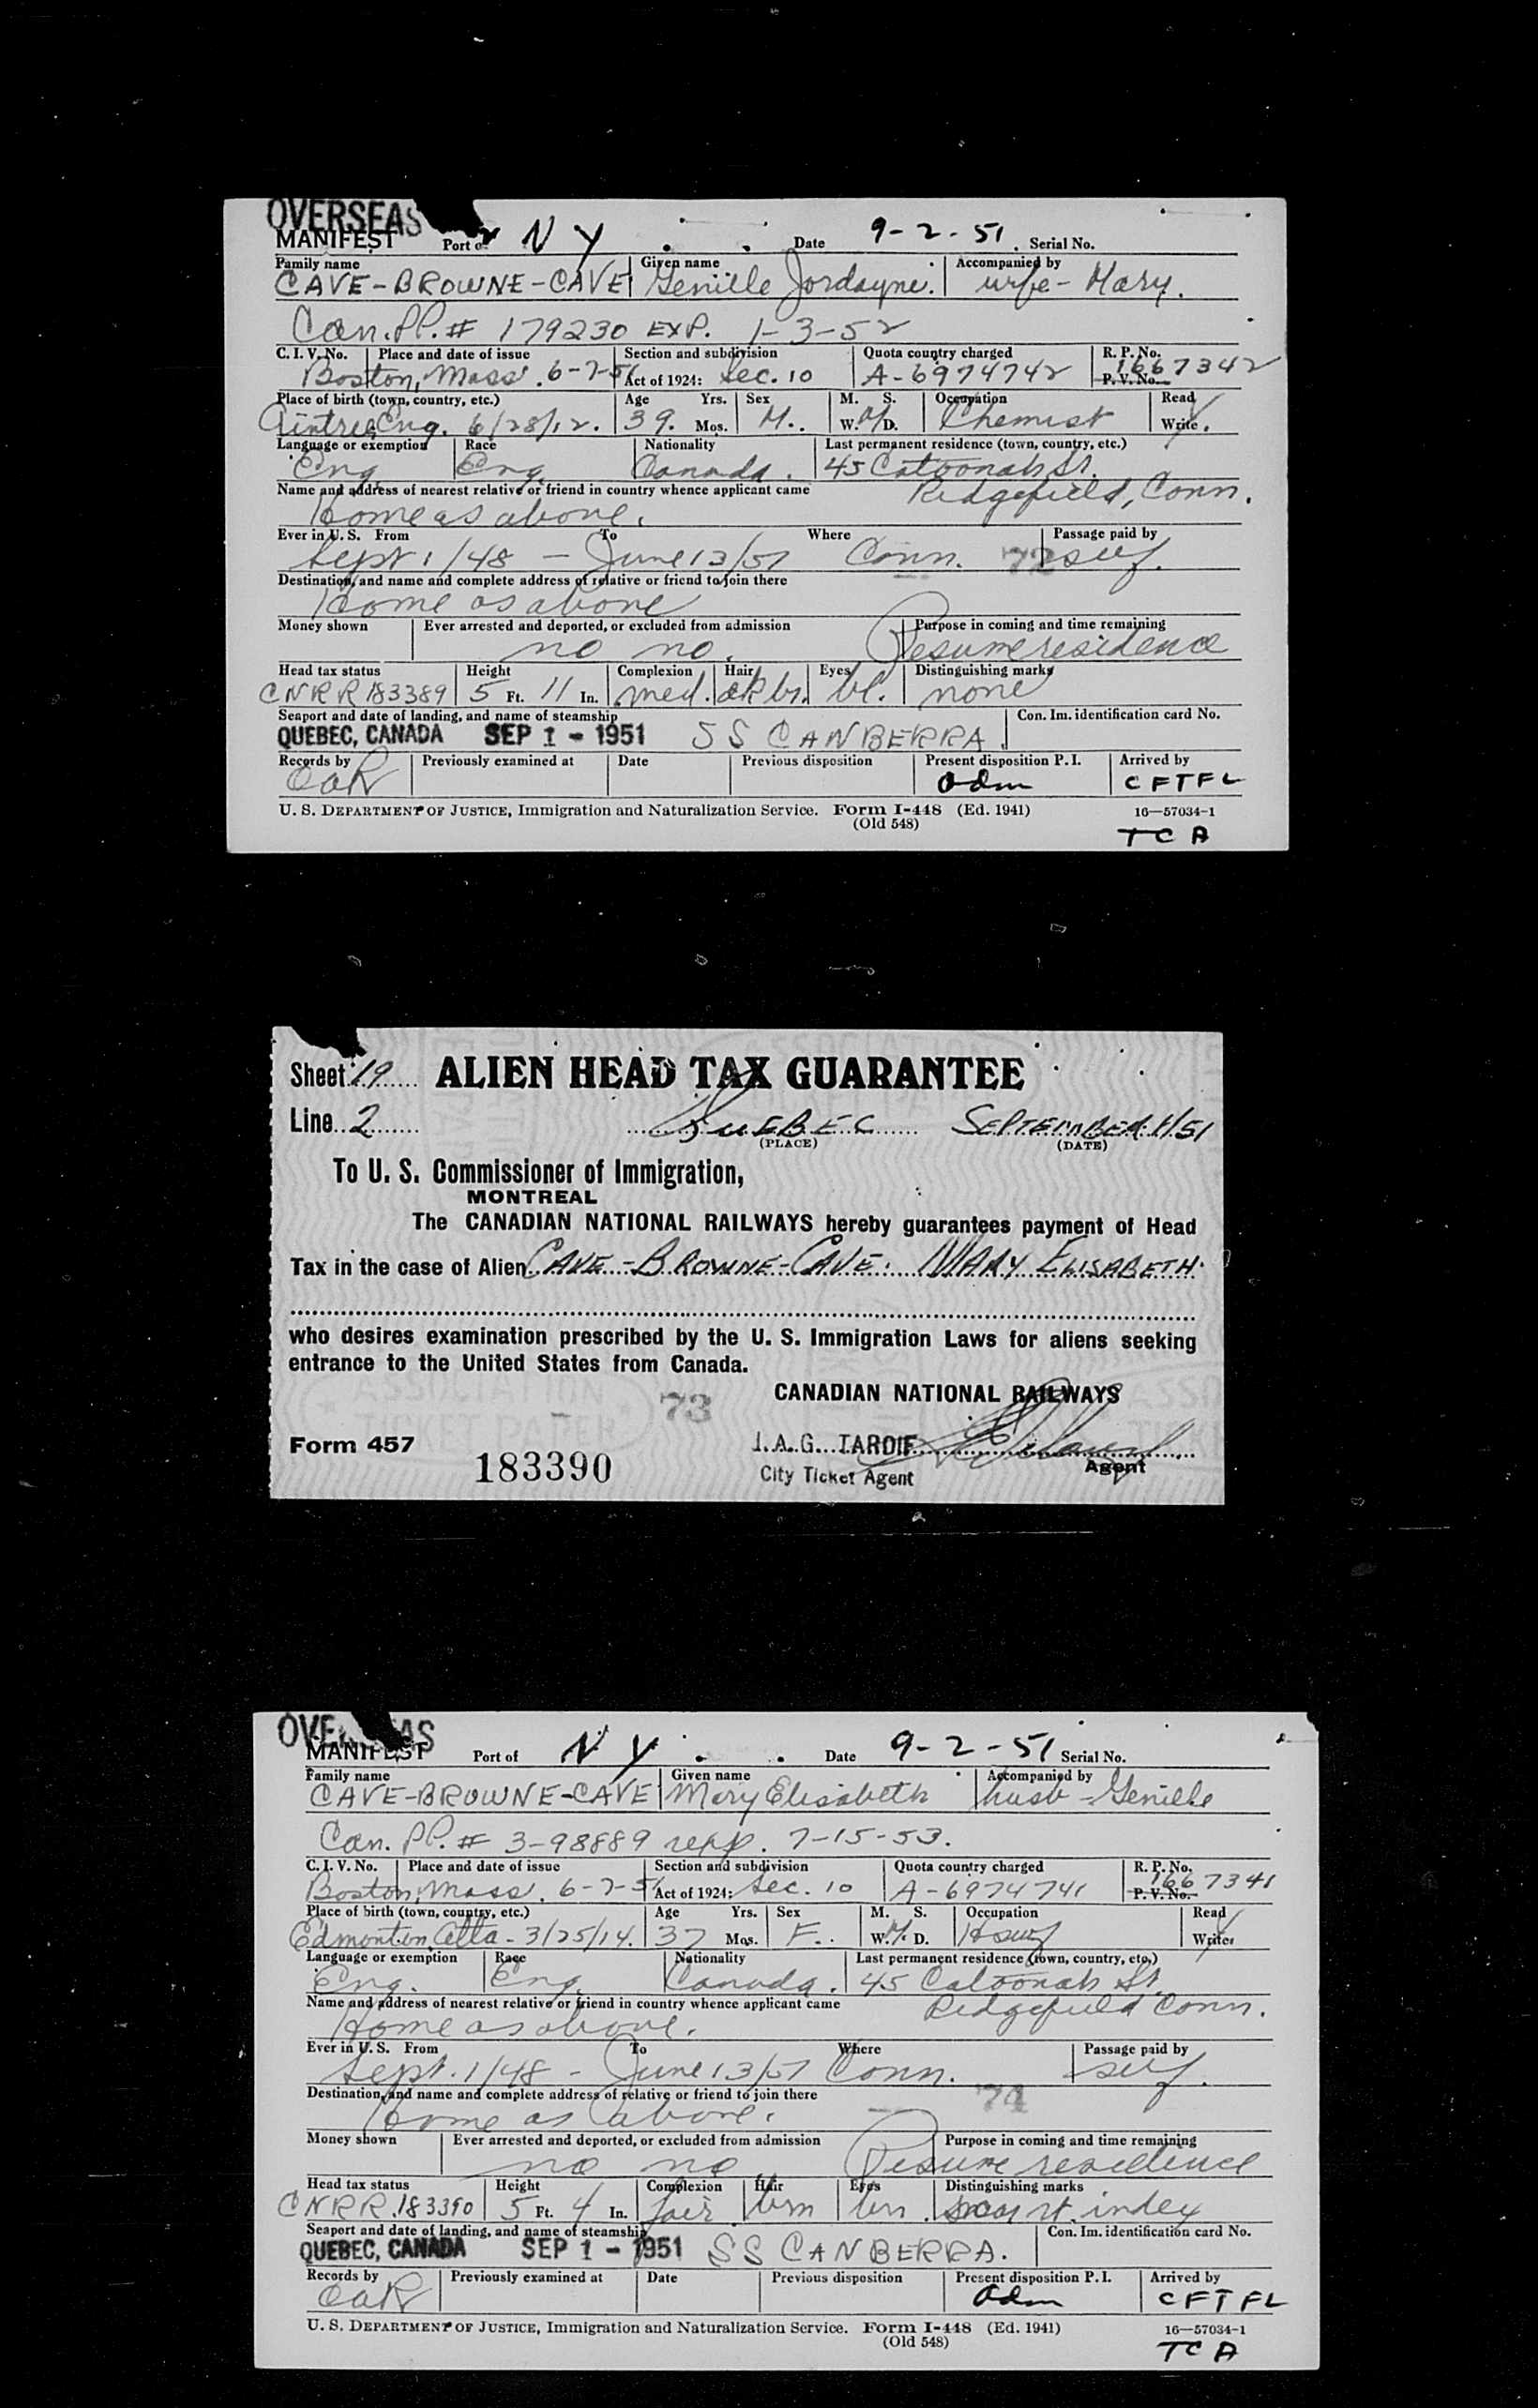 OVERSEAS
MANIFEST Port of N Y Date 9-2-51 Serial No.
Family name Given name Accompanied by
CAVE-BROWNE-CAVE Genille Jordayne. wife- Mary.
Can. P.P. # 179230 EXP. 1-3-52
C. I. V. No. Place and date of issue Section and subdivision Quota country charged R. P. No.
Boston, Mass. 6-7-51 Act of 1924: Sec. 10 A-6974742 1667342 P. V. No.
Place of birth (town, country, etc.) Age Yrs. Sex M. S. Occupation Read
Aintree, Eng. 6/28/12. 39. Mos. M. W. M D. Chemist Write.
Language or exemption Race Nationality Last permanent residence (town, country, etc.)
Eng Eng. Canada. 45 Catoonah St.
Name and address of nearest relative or friend in country whence applicant came Ridgefield, Conn.
Home as above.
Ever in U. S. From To Where Passage paid by
Sept 1/48 — June 13/51 Conn. 72 self.
Destination, and name and complete address of relative or friend to join there
Home as above
Money shown Ever arrested and deported, or excluded from admission Purpose in coming and time remaining
no no. Resume residence
Head tax status Height Complexion Hair Eyes Distinguishing marks
CNRR 183389 5 Ft. 11 In. med. dk br. bl. none
Seaport and date of landing, and name of steamship Con. Im. identification card No.
QUEBEC, CANADA SEP 1 - 1951 SS CANBERRA.
Records by Previously examined at Date Previous disposition Present disposition P. I. Arrived by
OaR adm CFTFL
U. S. DEPARTMENT OF JUSTICE, Immigration and Naturalization Service. Form I-448 (Ed. 1941) 16—57034-1
(Old 548)
TCA
Sheet 19 ALIEN HEAD TAX GUARANTEE
Line 2 QUEBEC SEPTEMBER 1/51
(PLACE) (DATE)
To U. S. Commissioner of Immigration,
MONTREAL
The CANADIAN NATIONAL RAILWAYS hereby guarantees payment of Head
Tax in the case of Alien CAVE-BROWNE-CAVE. MARY ELISABETH
who desires examination prescribed by the U. S. Immigration Laws for aliens seeking
entrance to the United States from Canada.
73 CANADIAN NATIONAL RAILWAYS
Form 457 J. A. G. TARDIF
183390 City Ticket Agent Agent
OVERSEAS
MANIFEST Port of N Y. Date 9-2-51 Serial No.
Family name Given name Accompanied by
CAVE-BROWNE-CAVE Mary Elisabeth husb - Genille
Can. P.P. # 3-98889 7-15-53.
C. I. V. No. Place and date of issue Section and subdivision Quota country charged R. P. No.
Boston, Mass. 6-7-51 Act of 1924: Sec. 10 A-6974741 1667341 P. V. No.
Place of birth (town, country, etc.) Age Yrs. Sex M. S. Occupation Read
Edmonton, Alta - 3/25/14. 37 Mos. F. W. M. D. Hswf Write
Language or exemption Race Nationality Last permanent residence (town, country, etc.)
Eng. Eng. Canada. 45 Catoonah St.
Name and address of nearest relative or friend in country whence applicant came Ridgefield Conn.
Home as above.
Ever in U. S. From To Where Passage paid by
Sept. 1/48 - June 13/51 Conn. self.
Destination, and name and complete address of relative or friend to join there 74
Home as above.
Money shown Ever arrested and deported, or excluded from admission Purpose in coming and time remaining
no no Resume residence
Head tax status Height Complexion Hair Eyes Distinguishing marks
CNRR. 183390 5 Ft. 4 In. fair brn brn. scar rt. index
Seaport and date of landing, and name of steamship Con. Im. identification card No.
QUEBEC, CANADA SEP 1 - 1951 SS CANBERRA.
Records by Previously examined at Date Previous disposition Present disposition P. I. Arrived by
OaR adm CFTFL
U. S. DEPARTMENT OF JUSTICE, Immigration and Naturalization Service. Form I-448 (Ed. 1941) 16—57034-1
(Old 548)
TCA